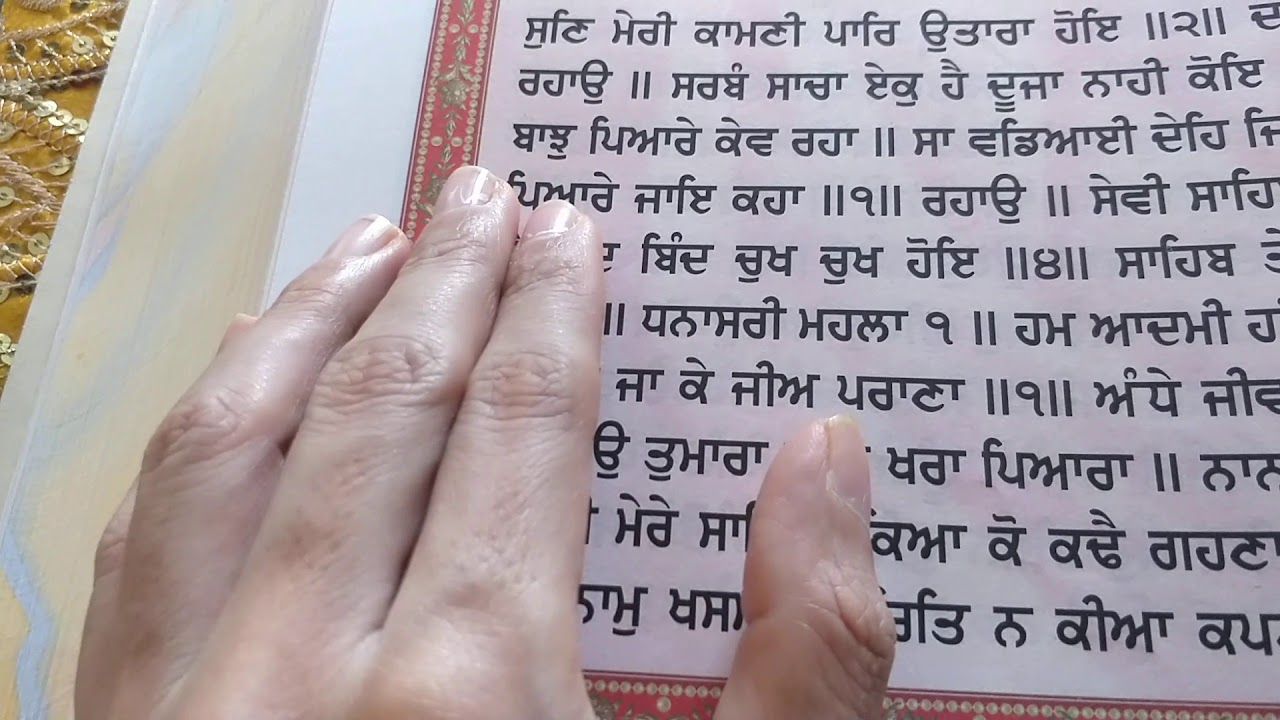 ਸੁਣਿ ਮੇਰੀ ਕਾਮਣੀ ਪਾਰਿ ਉਤਾਰਾ ਹੋਇ ॥੨॥
ਰਹਾਉ ॥ ਸਰਬੰ ਸਾਚਾ ਏਕੁ ਹੈ ਦੂਜਾ ਨਾਹੀ ਕੋਇ
ਬਾਝੁ ਪਿਆਰੇ ਕੇਵ ਰਹਾ ॥ ਸਾ ਵਡਿਆਈ ਦੇਹਿ
ਪਿਆਰੇ ਜਾਇ ਕਹਾ ॥੧॥ ਰਹਾਉ ॥ ਸੇਵੀ
ਬਿੰਦ ਚੁਖ ਚੁਖ ਹੋਇ ॥੪॥ ਸਾਹਿਬ
॥ ਧਨਾਸਰੀ ਮਹਲਾ ੧ ॥ ਹਮ ਆਦਮੀ
ਜਾ ਕੇ ਜੀਅ ਪਰਾਣਾ ॥੧॥ ਅੰਧੇ
ਤੁਮਾਰਾ ਖਰਾ ਪਿਆਰਾ ॥
ਮੇਰੇ ਕੋ ਕਢੈ ਗਹਣਾ
ਨ ਕੀਆ